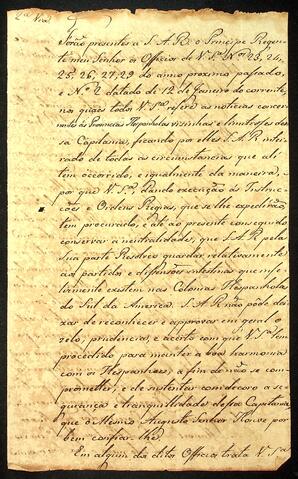 2.ª Via
Forão presentes a S. A. R. o Principe Regen-
te meu Senhor os Officios de V. S.ª N.os 23, 24,
25, 26, 27, 29 do anno proximo passado,
e N.º 2 datado de 12 de Janeiro do corrente,
nos quaes todos V. S.ª refere as noticias concer-
nentes ás Provincias Hespanholas visinhas e limitrofes des-
sa Capitania, ficando por elles S. A. R. intei-
rado de todas as circunstancias que ali
tem occorrido, e igualmente da maneira,
por que V. S.ª, dando execução ás Instruc-
ções e Ordens Regias, que se lhe expedirão,
tem procurado, e até ao presente conseguido
conservar a neutralidade, que S. A. R. pela
sua parte Resolveo guardar, relativamente
aos partidos e dissensões intestinas que infe-
lizmente existem nas Colonias Hespanholas
do Sul da America. S. A. R. não póde dei-
xar de reconhecer e approvar em geral o
zelo, prudencia, e acerto com que V. S.ª tem
procedido para manter a boa harmonia
com os Hespanhoes, a fim de não se com-
prometter, e de sustentar com decoro a se-
gurança e tranquillidade dessa Capitania,
que o Mesmo Augusto Senhor Houve por
bem confiar-lhe.
Em algum dos ditos Officios trata V. S.ª